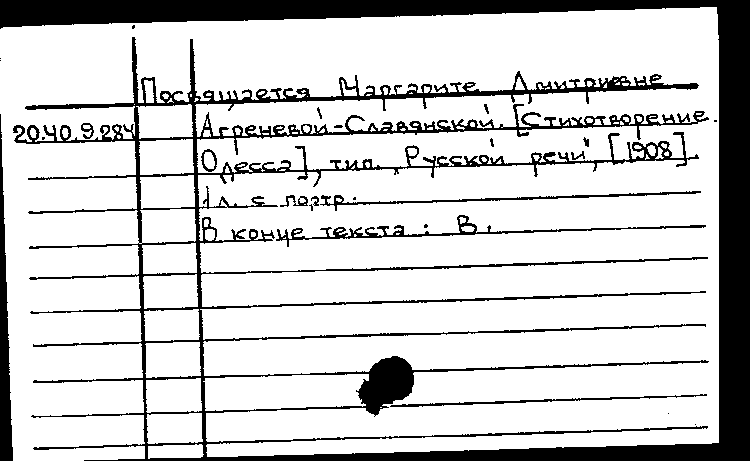 Посвящается Маргарите Дмитриевне
20.40.9.284 Агреневой-Славянской. [Стихотворение.
Одесса], тип. „Русской речи", [1908].
1 л. с портр.
В конце текста: В.